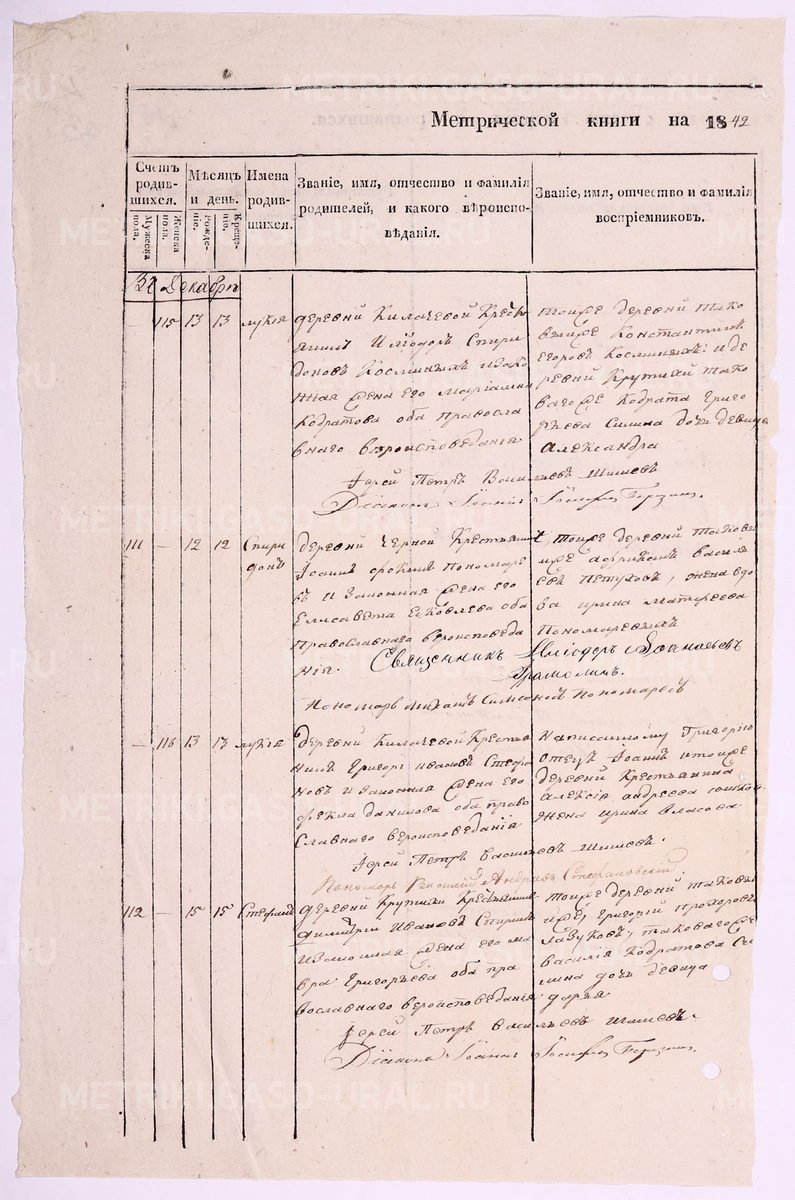 Метрической книги на 1842
Счетъ родив-шихся.
Мужеска пола.
Женска пола.
Мѣсяцъ и день.
Рожде-ніе.
Креще-ніе.
Имена родив-шихся.
Званіе, имя, отчество и фамилія
родителей, и какого вѣроиспо-
вѣданія.
Званіе, имя, отчество и фамилія
воспріемниковъ.
Въ Декабрѣ
— 115 13 13 лукія
деревни Килачевой Кресть
янинъ Иліодоръ Спири
доновъ Косминыхъ изако
нная жена его Маріамна
Кодратова оба правосла
внаго вѣроисповеданія
тоиже деревни тако
выиже Константинъ
Егоровъ Косминыхъ: и де
ревни Крутихи тако
вагоже Кодрата Григо
рьева Силина дочь девица
александра
Іерей Петръ Васильевъ Шишевъ
Діаконъ Іоаннъ
111 — 12 12 Спири
донъ
деревни Черной Крестьянинъ
Іоаннъ Пономаре
въ И Законная жена его
Елисавета Ековлева оба
Православнаго вероисповеда
нія.
тоиже деревни таковы
иже василь
евъ Петуховъ, жена вдо
ва ирина матфеева
Пономаревыхъ
Священникъ Иліодоръ
Пономарь михаилъ Пономаревъ
— 116 13 13 лукія
деревни Килачевой Крестья
нинъ Григорі ивановъ Стефа
новъ и Законная жена его
фекла данилова оба право
Славнаго вероисповеданія
Написанному Григорію
отецъ Іоаннъ итоиже
деревни Крестьянина
алексія андреева
жена ирина власова
Іерей Петръ васильевъ Шишевъ.
Пономарь Василий Стефановский
112 — 15 15 Стефанъ
деревни Крутихи Крестьянинъ
димитри Ивановъ Спиринъ
изаконная жена его ма
вра Григорьева оба пра
вославнаго вероисповеданія
тоиже деревни таковы
иже Григорій прохоровъ
таковагоже
василія Кодратова Си
лина дочь девица
дарья
Іерей Петръ Васильевъ Шишевъ.
Діаконъ Іоаннъ
METRIKI.GASO-URAL.RU